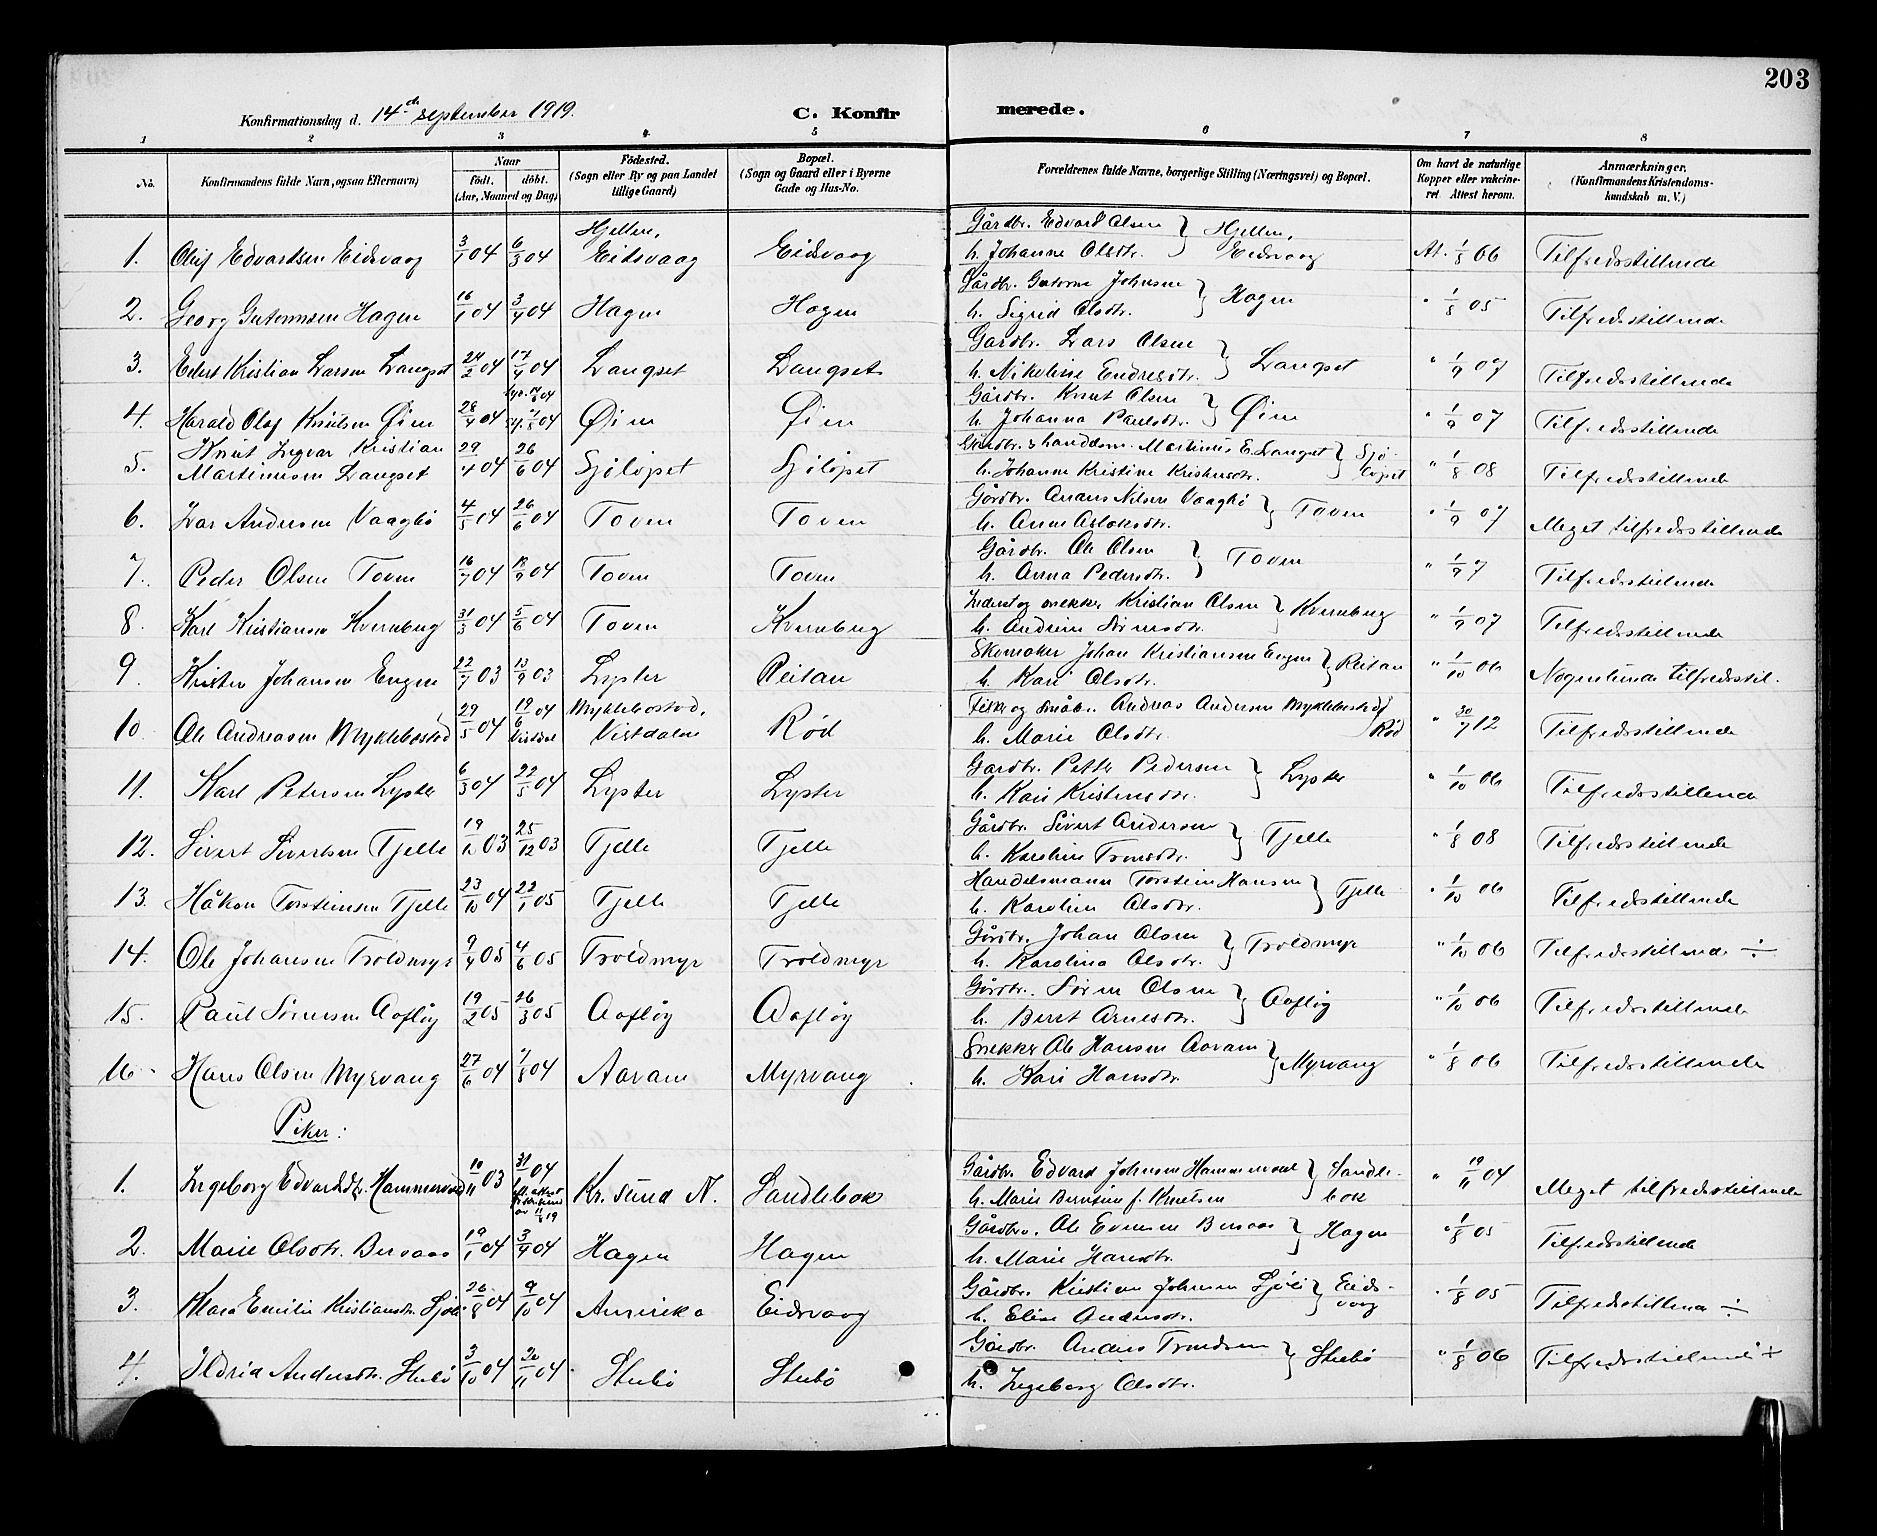 203
Konfirmationsdag d. 14de september 1919. C. Konfirmerede.
1 2 3 4 5 6 7 8
No. Konfirmandens fulde Navn, ogsaa Efternavn) Naar födt. döbt. (Aar, Maaned og Dag) Födested. (Sogn eller By og paa Landet tillige Gaard) Bopæl. (Sogn og Gaard eller i Byerne Gade og Hus-No. Forældrenes fulde Navne, borgerlige Stilling (Næringsvei) og Bopæl. Om havt de naturlige Kopper eller vakcineret Attest herom. Anmærkninger. (Konfirmandens Kristendomskundskab m. V.)
1. Oluf Edvardsen Eidsvaag 3/1 04 6/3 04 Hjellen, Eidsvaag Eidsvaag Gårdbr. Edvard Olsen h. Johanne Olsdtr. } Hjellen, Eidsvaag At. 1/8 06 Tilfredsstillende
2. Georg Gutormsen Hagen 16/1 04 3/4 04 Hagen Hagen Gårdbr. Gutorm Johnsen h. Sigrid Olsdtr. } Hagen " 1/8 05 Tilfredsstillende
3. Edert Kristian Larsen Langset 24/2 04 17/4 04 Langset Langset Gardbr. Lars Olsen h. Nikoline Endresdtr. } Langset " 1/9 07 Tilfredsstillende
4. Harald Olaf Knutsen Øien 28/4 04 Øien Øien Gårdbr. Knut Olsen h. Johanna Paulsdtr. } Øien " 1/9 07 Tilfredsstillende
5. Knut Ingvar Kristian Martinussen Langset 29/4 04 26/6 04 Sjöløpet Sjöløpet Gårdbr. & handelsm. Martinus E. Langset h. Johanne Kristine Kristensdtr. } Sjöløpet " 1/8 08 Tilfredsstillende
6. Lars Andersen Vaagbö 4/5 04 26/6 04 Toven Toven Gårdbr. Anders Nilsen Vaagbö h. Anne Aslaksdtr. } Toven " 1/9 07 Meget tilfredsstillende
7. Peder Olsen Toven 16/7 04 18/9 04 Toven Toven Gårdbr. Ole Olsen h. Anna Pedersdtr. } Toven " 1/9 7 Tilfredsstillende
8. Karl Kristiansen Kvernberg 31/3 04 5/6 04 Toven Kvernberg Inderst og snekker Kristian Olsen h. Andrine Sörensdtr. } Kvernberg " 1/9 07 Tilfredsstillende
9. Krister Johansen Engen 22/7 03 13/9 03 Lyster Reitan Skomaker Johan Kristiansen Engen h. Kari Olsdtr. } Reitan " 1/10 06 Nogenlunde tilfredsstil.
10. Ole Andreasen Myklebostad 29/5 04 19/6 04 Vistdal Myklebostad, Vistdalen Rød Fisker og småbr. Andreas Andersen Myklebostad h. Marie Olsdtr. } Rød " 30/7 12 Tilfredsstillende
11. Karl Petersen Lyster 6/3 04 22/5 04 Lyster Lyster Gardbr. Petter Pedersen h. Kari Kristensdtr. } Lyster " 1/10 06 Tilfredsstillende
12. Sivert Sivertsen Tjelle 03 25/12 03 Tjelle Tjelle Gårdbr. Sivert Andersen h. Karoline Tronsdtr. } Tjelle " 1/8 08 Tilfredsstillende
13. Håkon Torsteinsen Tjelle 23/10 04 22/1 05 Tjelle Tjelle Handelsmann Torstein Hansen h. Karoline Olsdtr. } Tjelle " 1/10 06 Tilfredsstillende
14. Ole Johansen Troldmyr 9/4 05 4/6 05 Troldmyr Troldmyr Gårdbr. Johan Olsen h. Karolina Olsdtr. } Troldmyr " 1/10 06 Tilfredsstillende ÷
15. Paul Sörensen Aafløy 19/2 05 26/3 05 Aafløy Aafløy Gårdbr. Sören Olsen h. Beret Arnesdtr. } Aafløy " 1/10 06 Tilfredsstillende
16. Hans Olsen Myrvang 27/6 04 7/8 04 Aaram Myrvang Snekker Ole Hansen Aaram h. Kari Hansdtr. } Myrvang " 1/8 06 Tilfredsstillende
Piker:
1. Ingeborg Edvardsdtr. Hammervold 10/11 03 31/1 04 Kr. sund N. Sandlebok Gårdbr. Edvard Johnsen Hammervold h. Marie Berntine f. Knutsen } Sandlebok " 19/11 04 Meget tilfredsstillende
2. Marie Olsdtr. Bersaas 19/1 04 3/4 04 Hagen Hagen Gårdbr. Ole Evensen Bersaas h. Marie Hansdtr. } Hagen " 1/8 05 Tilfredsstillende
3. Klara Emilie Kristiansdtr. Sjöli 26/8 04 9/10 04 Amerika Eidsvaag Gårdbr. Kristian Johnsen Sjöli h. Elise Andersdtr. } Eidsvaag " 1/8 05 Tilfredsstillende ÷
4. Ildrid Andersdtr. Stubö 3/10 04 20/11 04 Stubö Stubö Gårdbr. Anders Trondsen h. Ingeborg Olsdtr. } Stubö " 1/8 06 Tilfredsstillende +